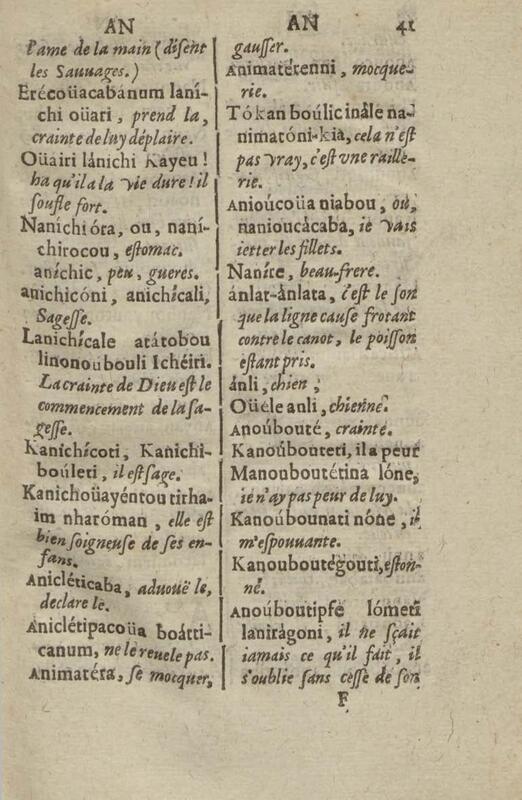 AN
l'ame de la main (diſent
les Sauuages.)
Erécoüacabánum laní-
chi oüari, prend la,
crainte de luy déplaire.
Oüairi lánichi Kayeu !
ha qu'il a la vie dure ! il
ſoufle fort.
Naníchi óra, ou, naní-
chirocou, eſtomac.
aníchic, peu, gueres.
anichicóni, anichícali,
Sageſſe.
Lanichícale atátobou
linonoúbouli Ichéiri.
La crainte de Dieu eſt le
commencement de la ſa-
geſſe.
Kanichícoti, Kanichi-
bouleti, il eſt ſage.
Kanichoüayéntou tirha-
im nharóman, elle eſt
bien ſoigneuſe de ſes en-
fans.
Anicléticaba, aduouë le,
declare le.
Aniclétipacoüa boátti-
canum, ne le reuele pas.
Animatéra, ſe mocquer,
AN 41
gauſſer.
Animatérenni, mocque-
rie.
Tókan boúlic inále na-
nimatóni-kia, cela n'eſt
pas vray, c'eſt vne raille-
rie.
Anioúcoüa niabou, où,
nanioucácaba, ie vais
ietter les fillets.
Naníre, beau-frere.
ánlat-ánlata, c'eſt le ſon
que la ligne cauſe frotant
contre le canot, le poiſſon
eſtant pris.
ánli, chien ;
Oüéle anli, chienne.
Anoúbouté, crainte.
Kanoúbouteti, il a peur
Manouboutétina lóne,
ie n'ay pas peur de luy.
Kanoúbounati nóne, il
m'eſpouuante.
Kanouboutégouti, eſton-
né.
Anoúboutipfe lómeti
lanirágoni, il ne ſçait
iamais ce qu'il fait, il
s'oublie ſans ceſſe de ſon
F